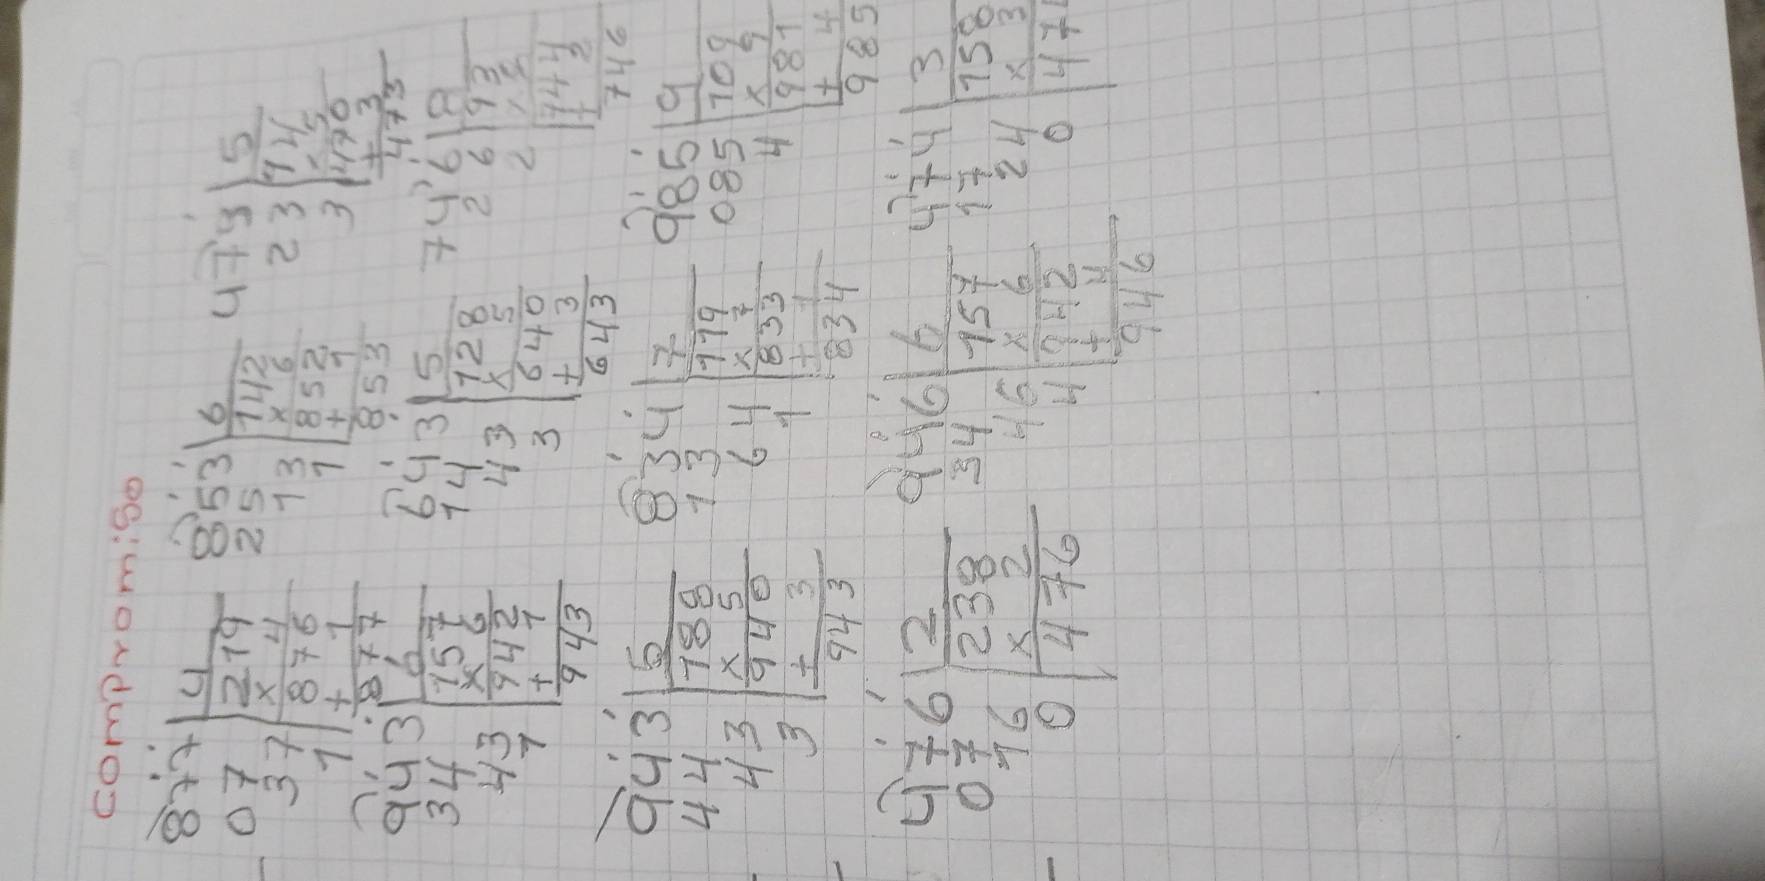 compromiso
877 4 853 6 473 5
07 219 25 142 23 94
37 x 4 13 x 6 3 x 5
1 876 1 852 470
+ 1 + 1 + 3
877 853 473
943 6 643 5 746 8
34 157 14 128 26 93
43 x 6 43 x 5 2 x 8
1 942 3 640 744
+ 1 + 3 + 2
943 643 746
943 5 834 7 985 9
44 188 13 119 085 109
43 x 5 64 x 7 4 x 9
3 940 1 833 981
+ 3 + 1 + 4
943 834 985
476 2 946 6 474 3
07 238 34 157 17 158
16 x 2 46 x 6 24 x 3
0 476 4 942 0 47
+ 4
946